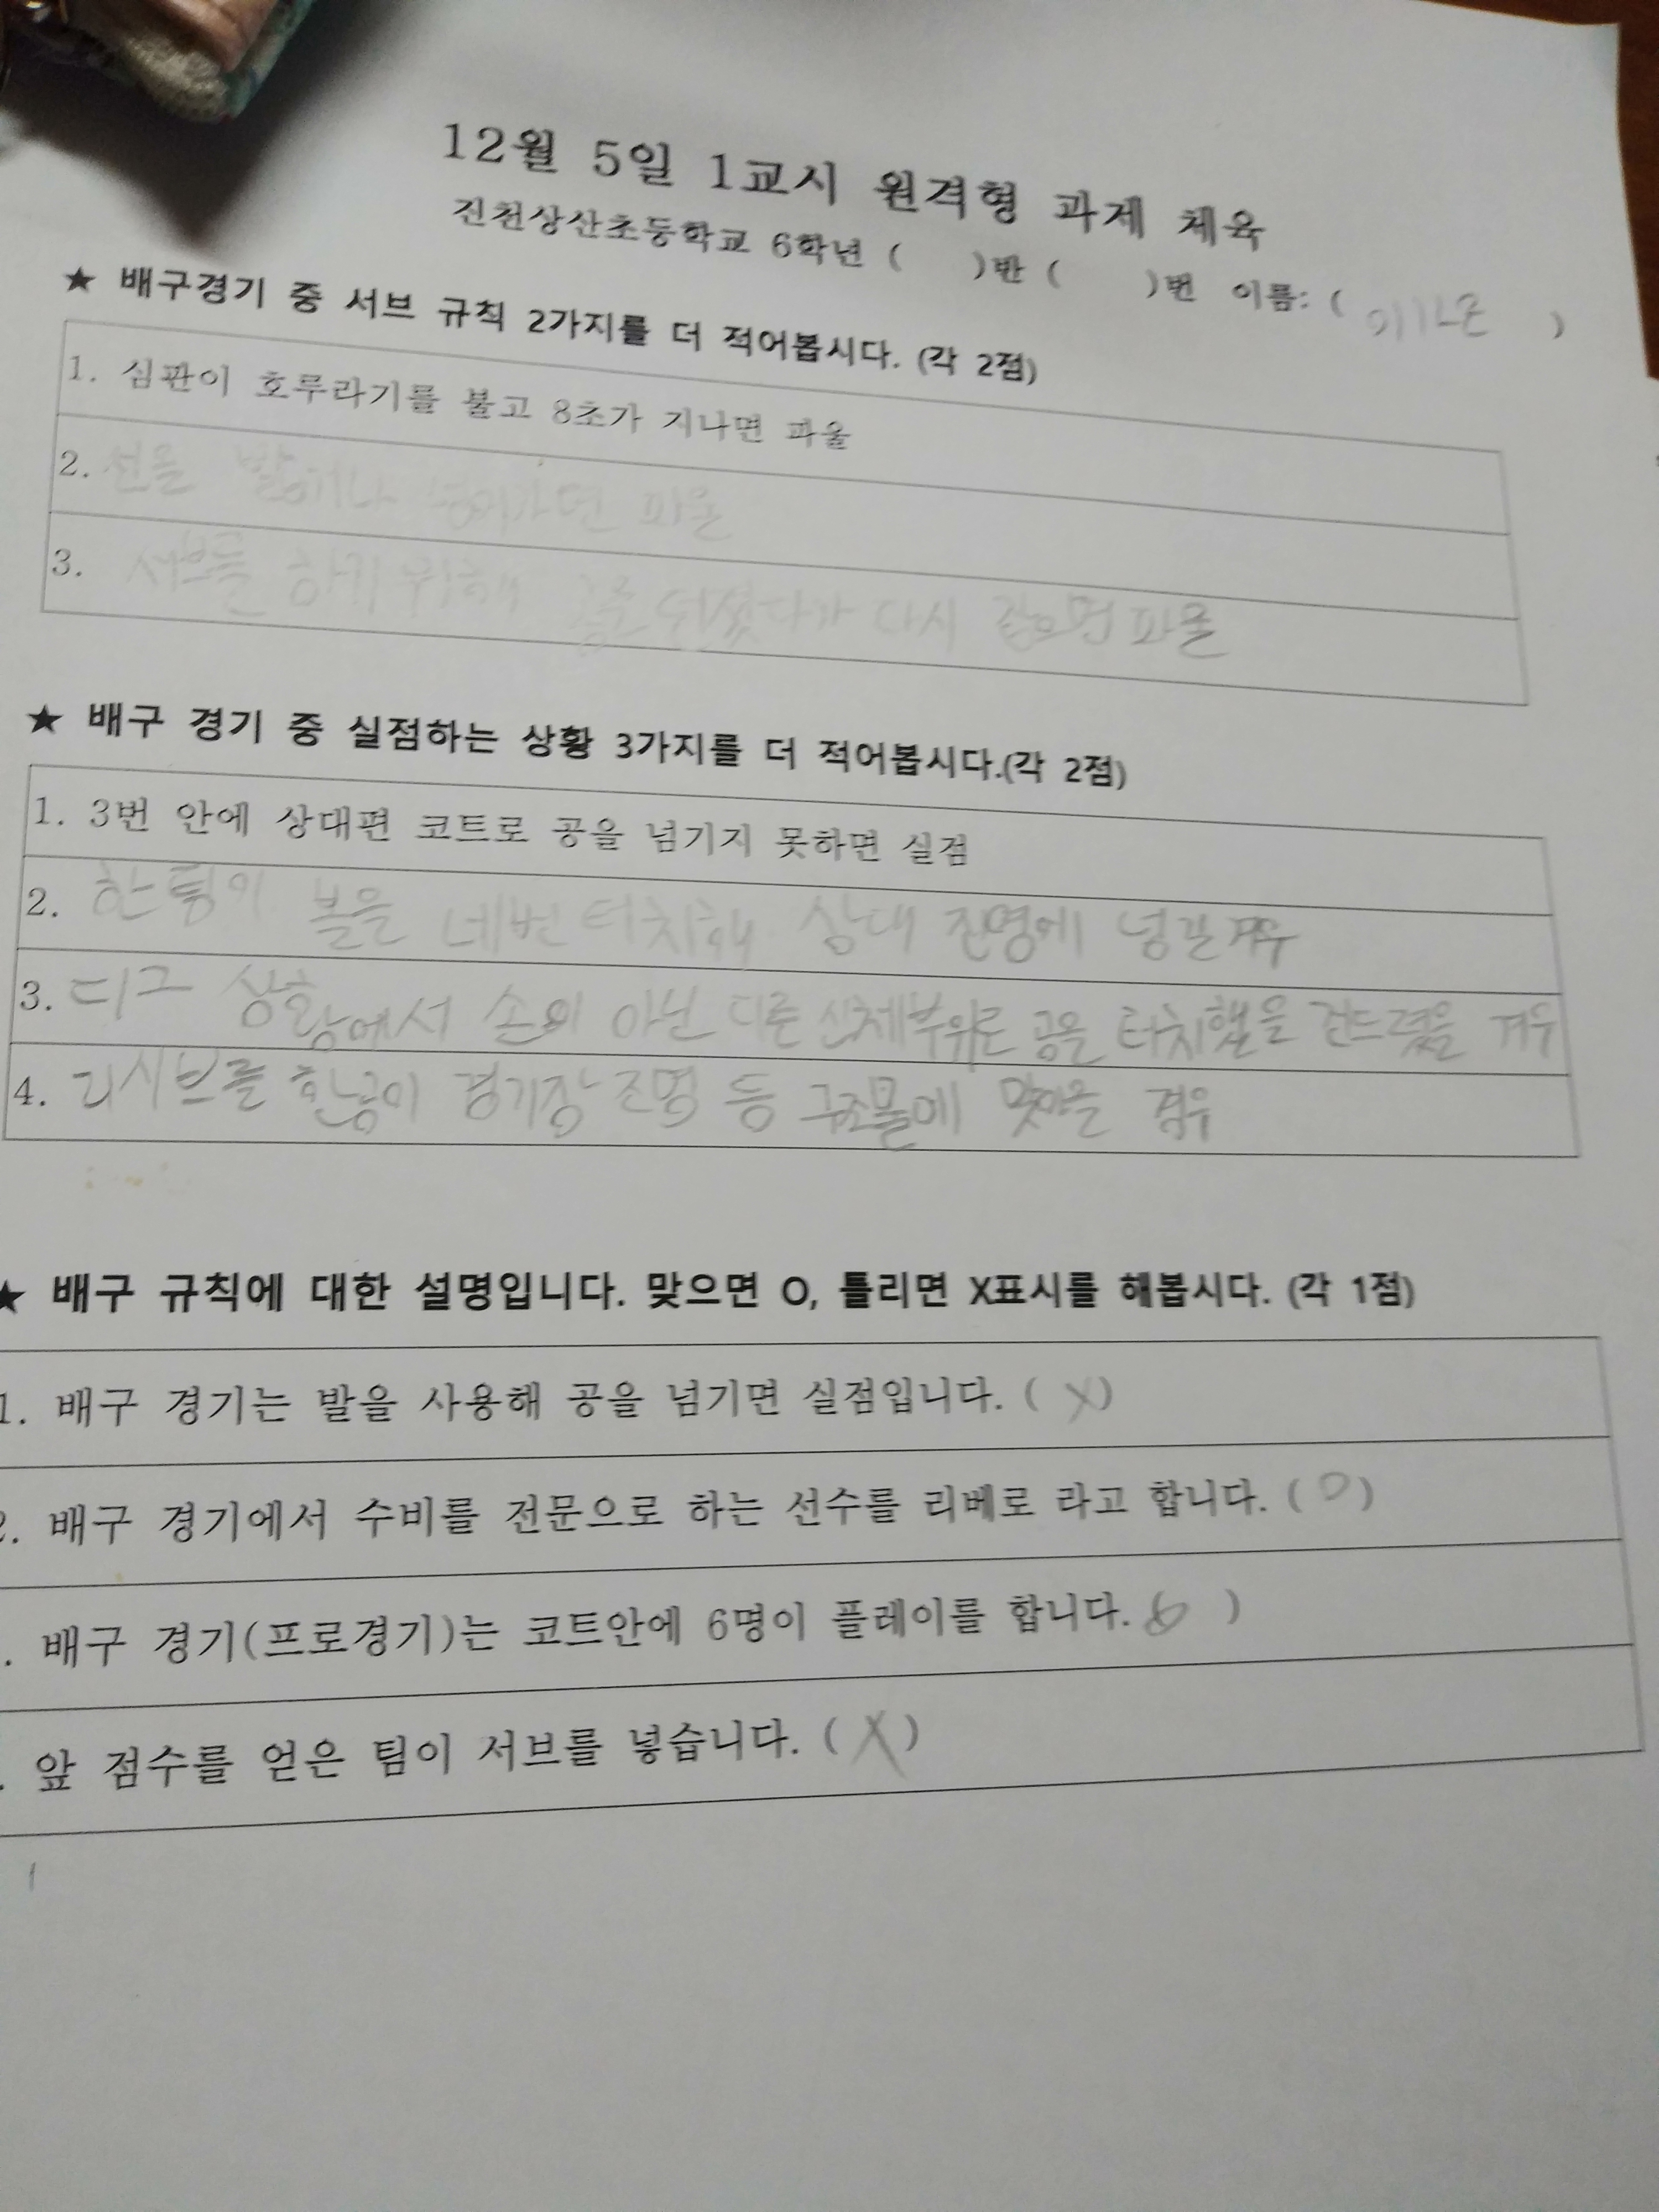 12월 5일 1교시 원격형 과제 체육
진천상산초등학교 6학년 ( )반 ( )번 이름: ( )
★ 배구경기 중 서브 규칙 2가지를 더 적어봅시다. (각 2점)
1. 심판이 호루라기를 불고 8초가 지나면 파울
2. 선을 밟거나 넘어가면 파울
3. 서브를 하기 위해 공을 던졌다가 다시 잡으면 파울
★ 배구 경기 중 실점하는 상황 3가지를 더 적어봅시다.(각 2점)
1. 3번 안에 상대편 코트로 공을 넘기지 못하면 실점
2. 한 팀이 볼을 네번 터치해 상대 진영에 넘길 경우
3. 디그 상황에서 손이 아닌 다른 신체부위로 공을 터치했을 건드렸을 겨우
4. 리시브를 한공이 경기장 조명 등 구조물에 맞아을 경우
★ 배구 규칙에 대한 설명입니다. 맞으면 O, 틀리면 X표시를 해봅시다. (각 1점)
1. 배구 경기는 발을 사용해 공을 넘기면 실점입니다. ( X )
2. 배구 경기에서 수비를 전문으로 하는 선수를 리베로 라고 합니다. ( O )
. 배구 경기(프로경기)는 코트안에 6명이 플레이를 합니다. ( O )
. 앞 점수를 얻은 팀이 서브를 넣습니다. ( X )